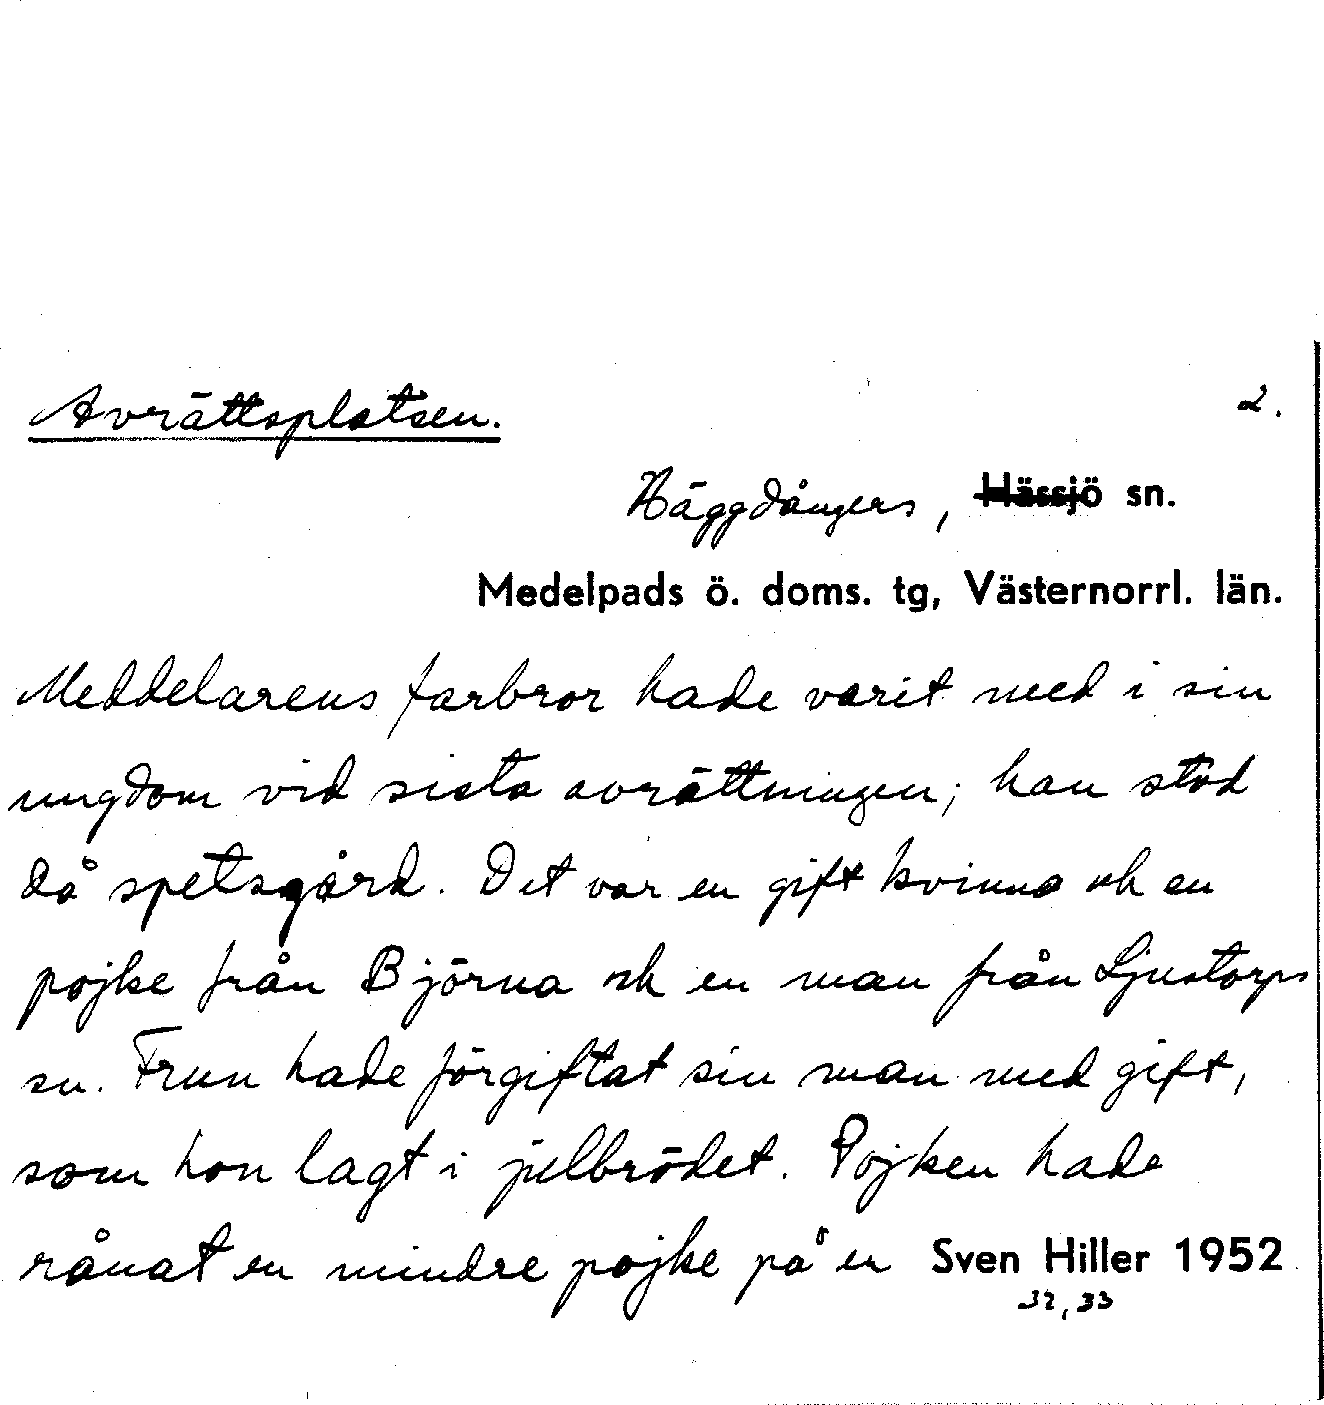 Avrättsplatsen.
2.
Häggdångers, Hässjö sn.
Medelpads ö. doms. tg, Västernorrl. län.
Meddelarens farbror hade varit med i sin
ungdom vid sista avrättningen; han stod
då spetsgård. Det var en gift kvinna och en
pojke från Björna och en man från Ljustorps
sn. Frun hade förgiftat sin man med gift,
som hon lagt i julbrödet. Pojken hade
rånat en mindre pojke på en Sven Hiller 1952
32, 33